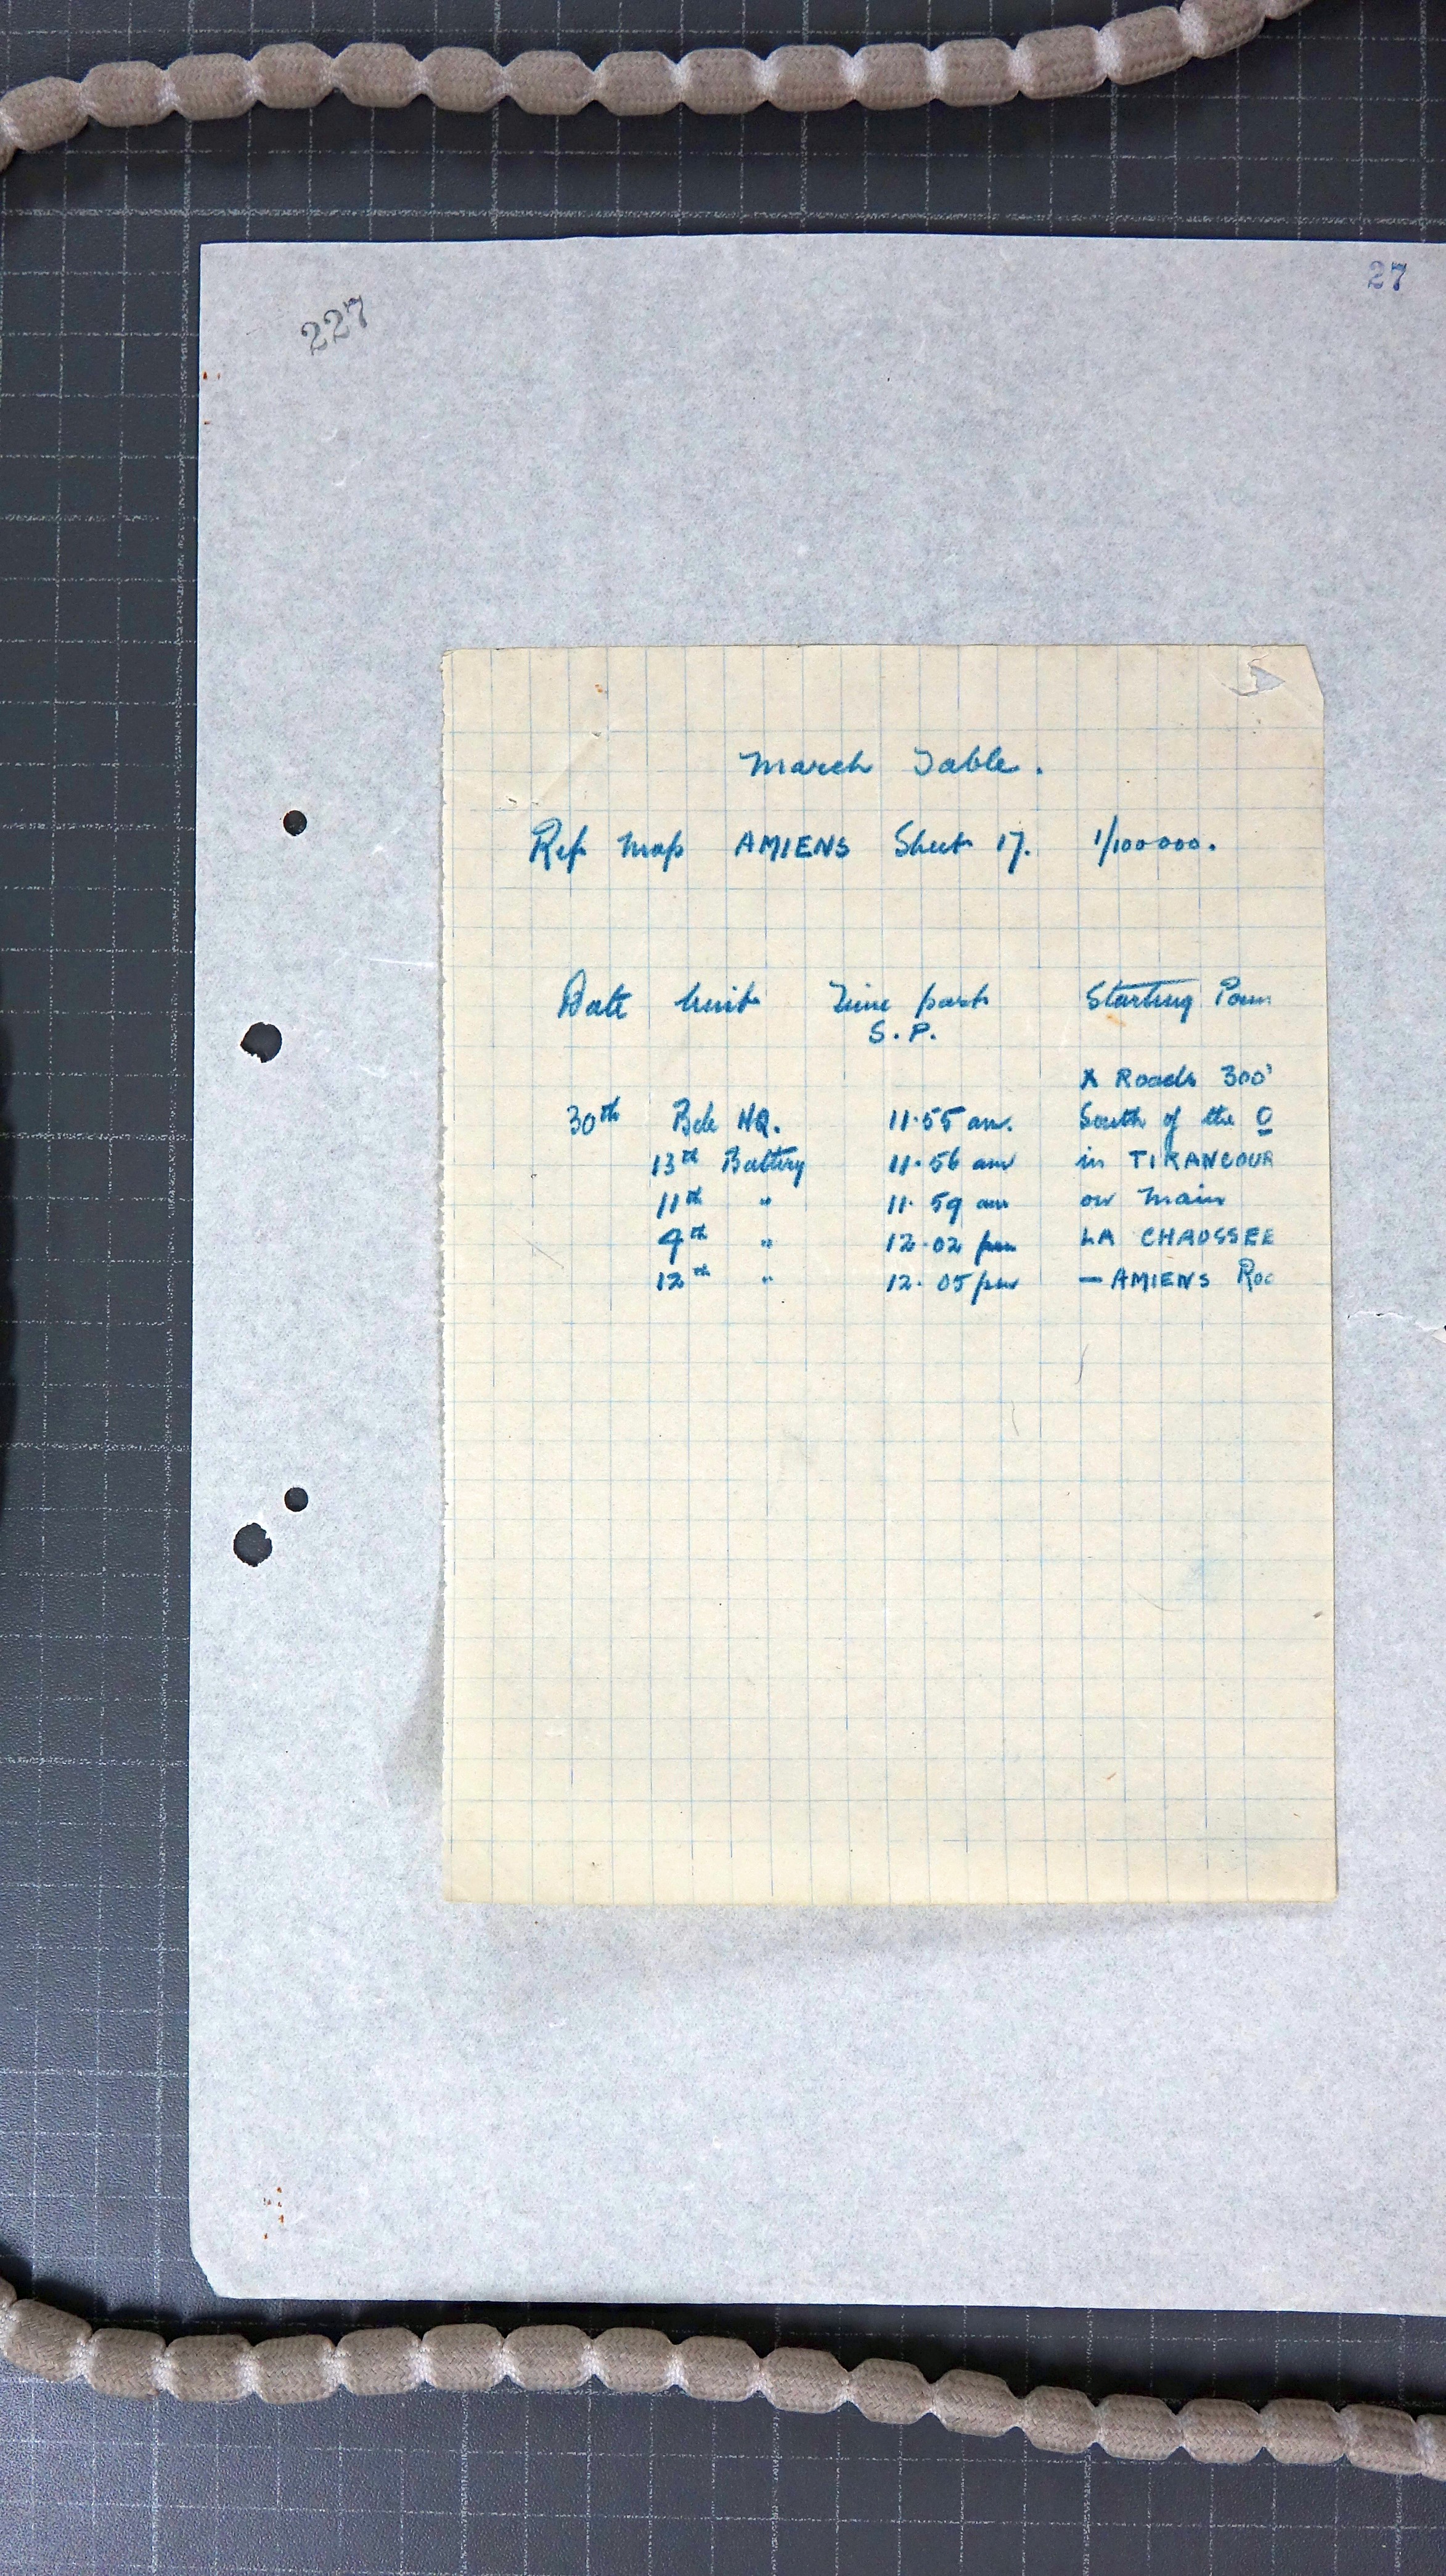 27
227
March Table.
Ref Map AMIENS Sheet 17. 1/100000.
Date Unit Time past Starting Poin
S.P.
X Roads 300'
30th Bde HQ. 11.55 am. South of the O
13th Battery 11.56 am in TIRANCOUR
11th " 11.59 am on main
9th " 12.02 pm LA CHAUSSEE
12th " 12.05 pm — AMIENS Roa